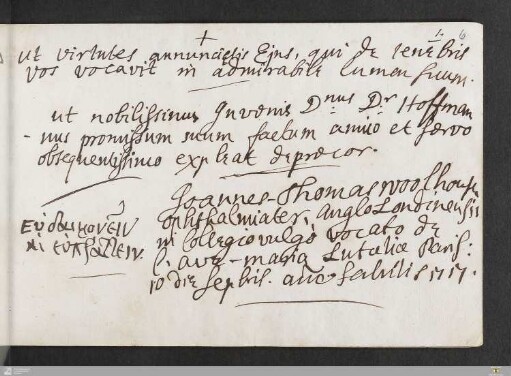 6
ut virtutes annuncietis Ejus, qui de tenebris
vos vocavit in admirabile lumen suum.
ut nobilissimus Juvenis Dnus Dr Hoffman
-nus promissum suum factum amico et servo
obsequentissimo expleat deprecor.
Joannes-Thomas woolhouse
ophthalmiater, Anglo Londinensis
in Collegio vulgò vocato de
l'ave-maria Lutatiæ Paris:
10 die Sepbris. anc Salutis 1717.
Εὐδαιμονεῖν
κι εὐπράττειν.